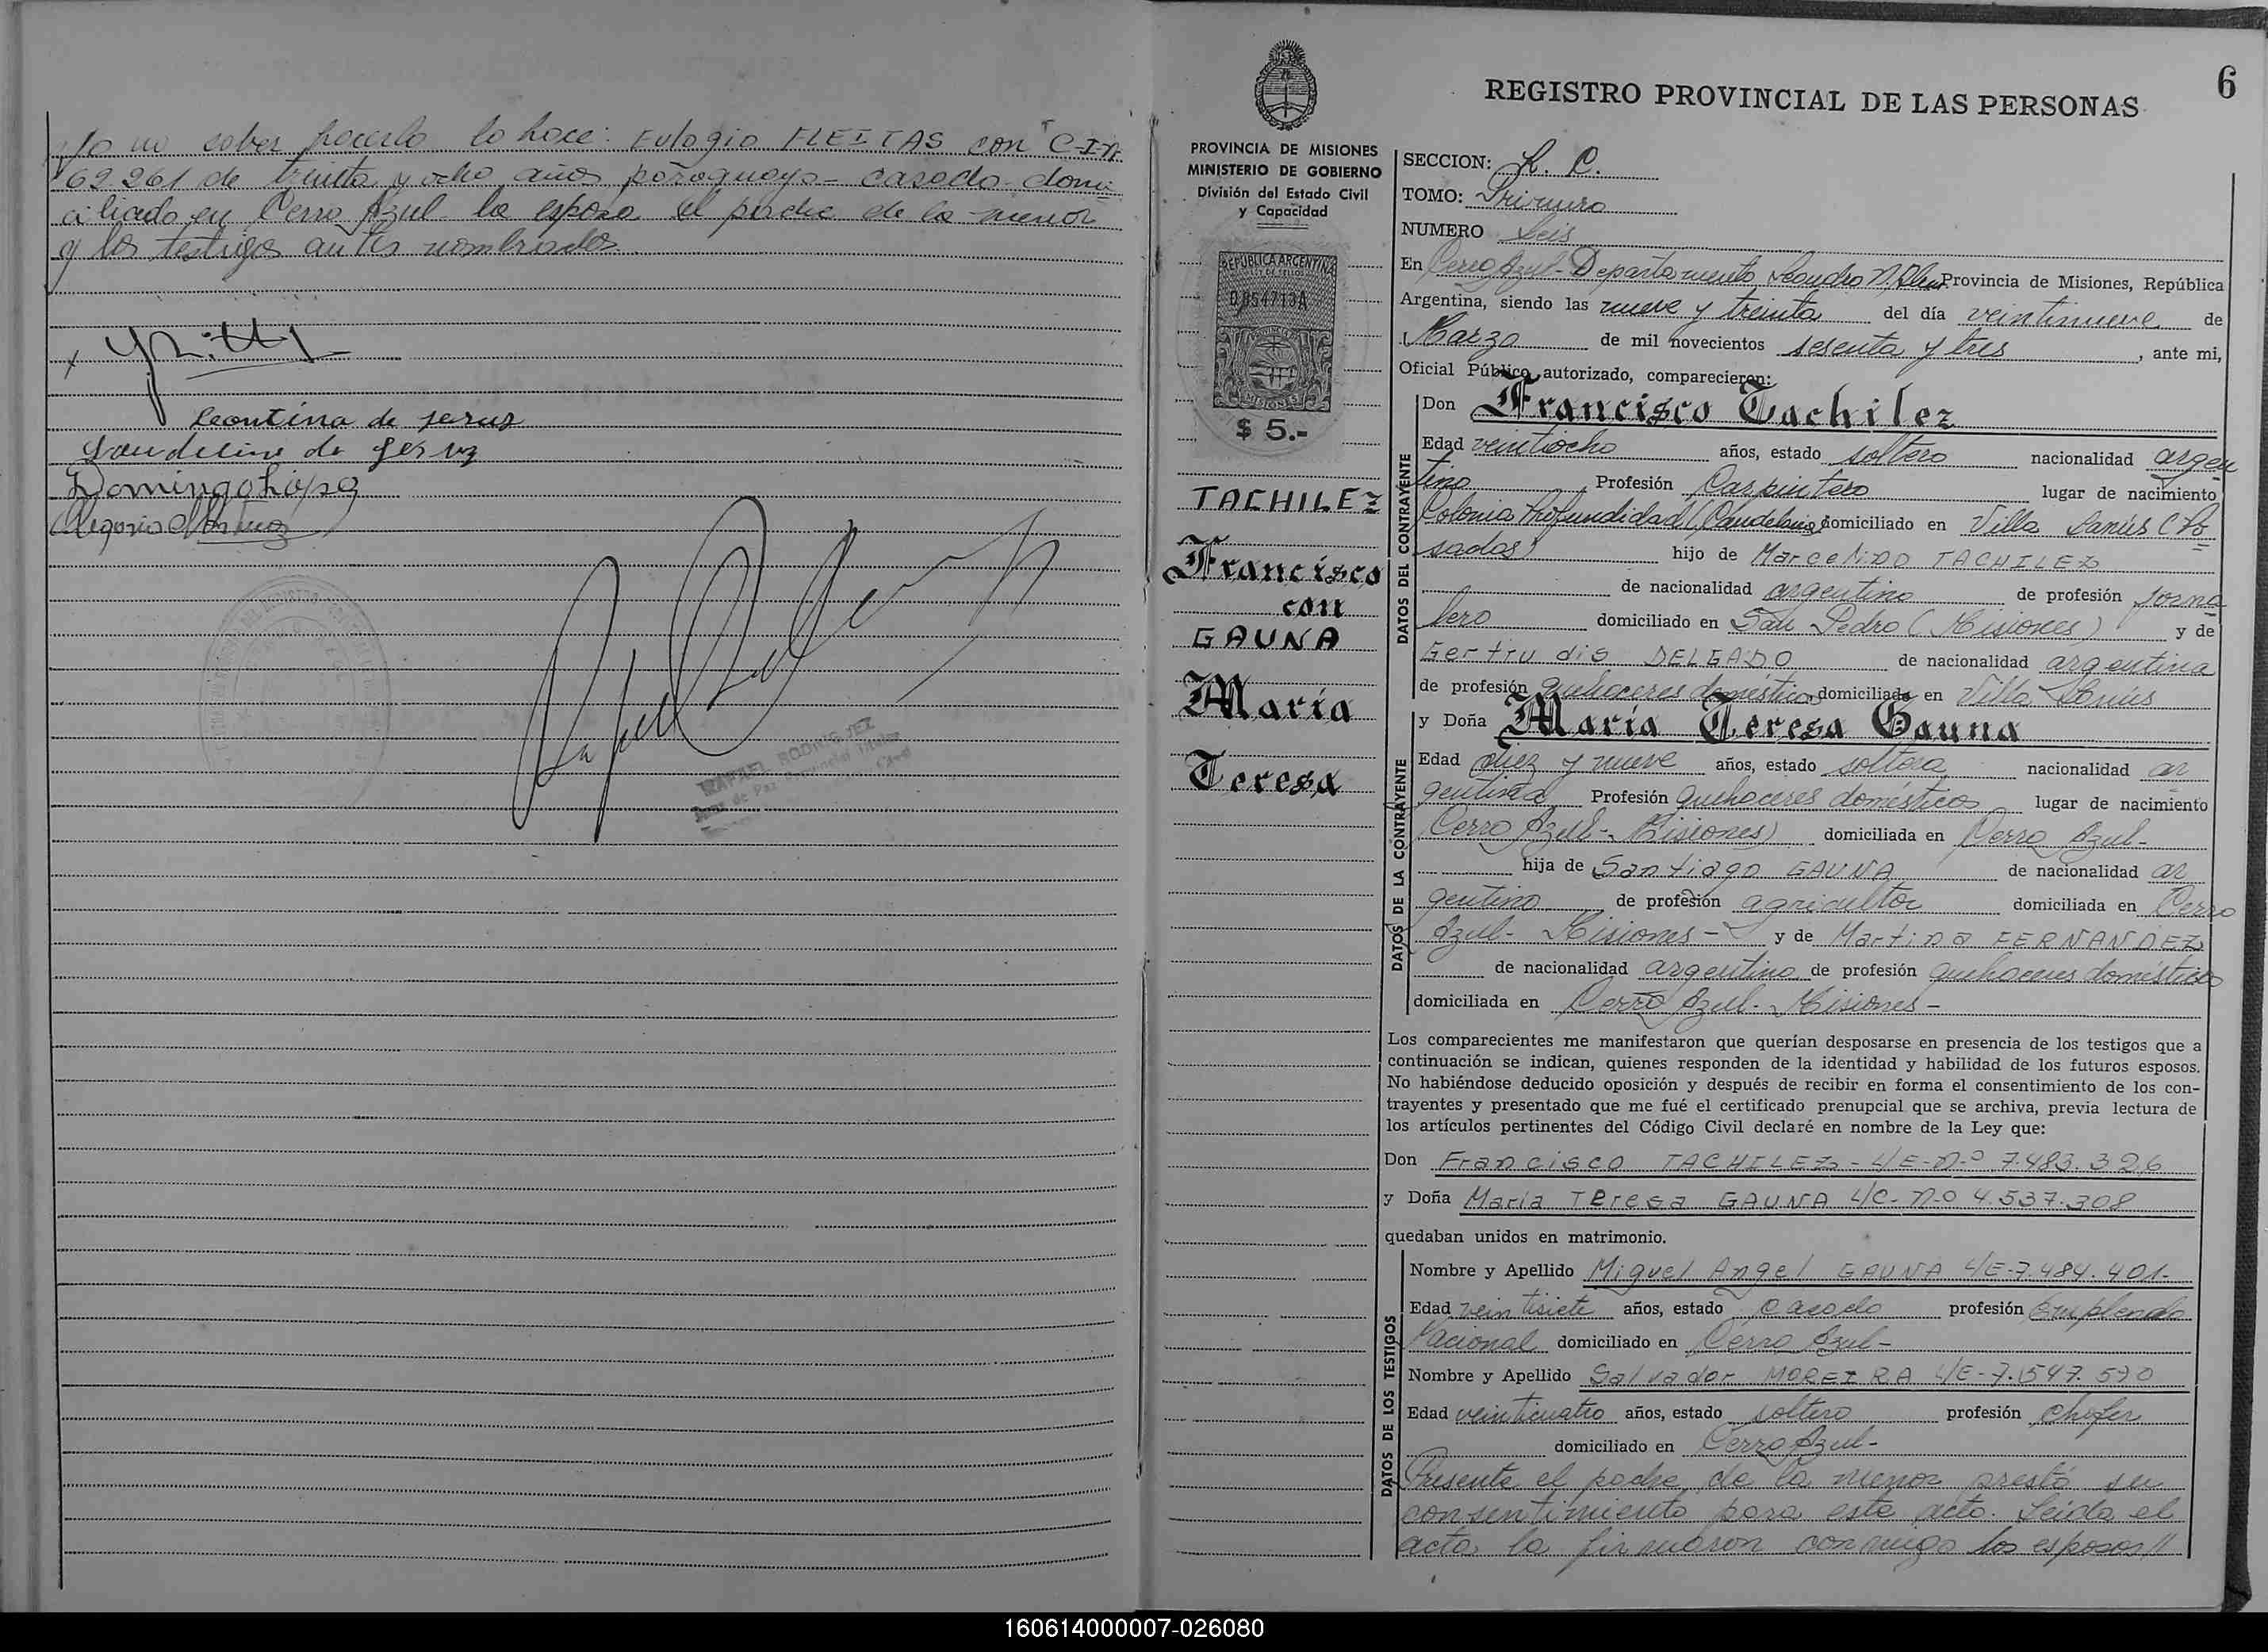 no saber hacerlo lo hace: Eulogio FLEITAS con C-I-Nº
69.261 de treinta y ocho años paraguayo - casado - domi
ciliado en Cerro Azul - la esposa el padre de la menor
y los testigos antes nombrados.
Leontina de jesus
Laudelino de jesus
Domingo López
RAFAEL RODRIGUEZ
Juez de Paz Provincial Titular
6
REGISTRO PROVINCIAL DE LAS PERSONAS
PROVINCIA DE MISIONES
MINISTERIO DE GOBIERNO
División del Estado Civil
y Capacidad
REPUBLICA ARGENTINA
LEY DE SELLOS
0,054713A
MISIONES
$ 5.-
TACHILEZ
Francisco
con
GAUNA
María
Teresa
SECCION: R. C.
TOMO: Primero
NUMERO Seis
En Cerro Azul - Departamento Leandro N. Alem Provincia de Misiones, República
Argentina, siendo las nueve y treinta del día veintinueve de
Marzo de mil novecientos sesenta y tres, ante mi,
Oficial Público autorizado, comparecieron:
DATOS DEL CONTRAYENTE
Don Francisco Tachilez
Edad veintiocho años, estado soltero nacionalidad argen
tino Profesión Carpintero lugar de nacimiento
Colonia Profundidad (Candelaria) domiciliado en Villa Lanús (Po
sadas) hijo de Marcelino TACHILEZ
de nacionalidad argentino de profesión jorna
lero domiciliado en San Pedro (Misiones) y de
Gertrudis DELGADO de nacionalidad argentina
de profesión quehaceres domésticos domiciliada en Villa Lanús
DATOS DE LA CONTRAYENTE
y Doña María Teresa Gauna
Edad diez y nueve años, estado soltera nacionalidad ar
gentina Profesión quehaceres domésticos lugar de nacimiento
Cerro Azul - Misiones) domiciliada en Cerro Azul -
hija de Santiago GAUNA de nacionalidad ar
gentino de profesión agricultor domiciliada en Cerro
Azul - Misiones - y de Martina FERNANDEZ
de nacionalidad argentina de profesión quehaceres domésticos
domiciliada en Cerro Azul - Misiones -
Los comparecientes me manifestaron que querían desposarse en presencia de los testigos que a
continuación se indican, quienes responden de la identidad y habilidad de los futuros esposos.
No habiéndose deducido oposición y después de recibir en forma el consentimiento de los con-
trayentes y presentado que me fué el certificado prenupcial que se archiva, previa lectura de
los artículos pertinentes del Código Civil declaré en nombre de la Ley que:
Don Francisco TACHILEZ - L/E-Nº 7.483.326
y Doña María Teresa GAUNA L/C-Nº 4.537.308
quedaban unidos en matrimonio.
DATOS DE LOS TESTIGOS
Nombre y Apellido Miguel Angel GAUNA L/E-7.484.401-
Edad veintisiete años, estado casado profesión Empleado
Nacional domiciliado en Cerro Azul -
Nombre y Apellido Salvador MOREIRA L/E-7.547.590
Edad veinticuatro años, estado soltero profesión chofer
domiciliado en Cerro Azul -
Presente el padre de la menor prestó su
consentimiento para este acto. Leída el
acta la firmaron conmigo los esposos//
160614000007-026080